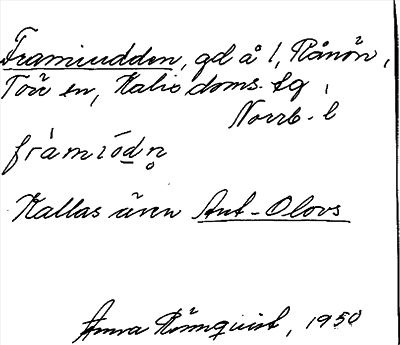 Framiudden, gd å l, Rånön,
Töre sn, Kalix doms. sg,
Norrb. l
fràmıódn̥
Kallas även Ant-Olovs
Anna Rönnquist, 1950